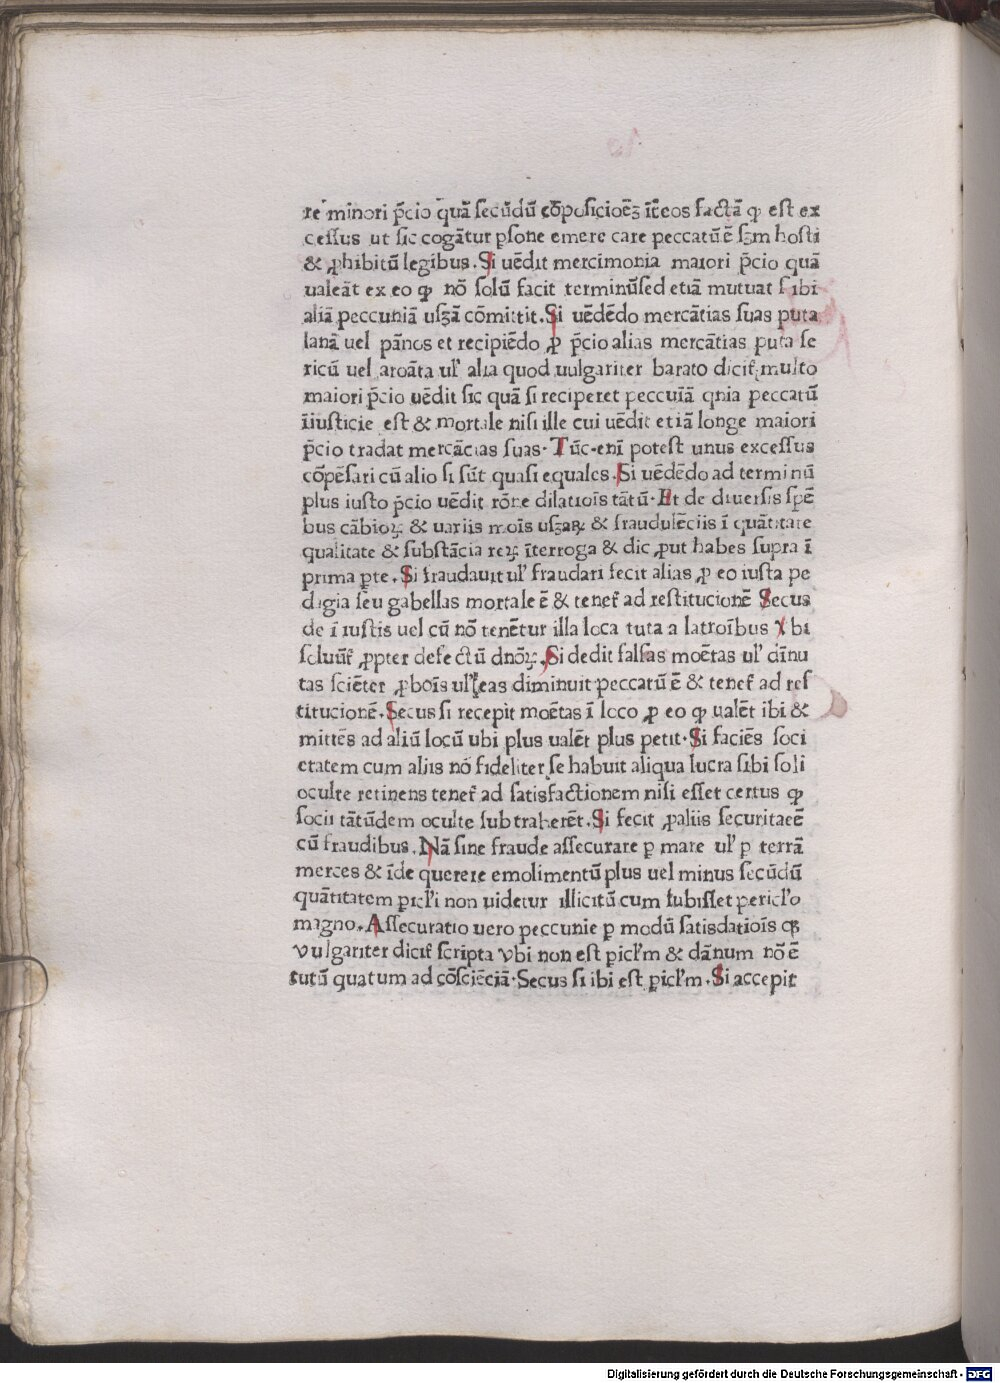 re minori p̄cio quā secūdū cōposicioēꝫ īt̄eos factā ꝙ est ex
cessus ut sic cogātur ꝑsone emere care peccatū ē sꝫm hosti
& ꝓhibitū legibus. Si uēdit mercimonia maiori p̄cio quā
ualeāt ex eo ꝙ nō solū facit terminū sed etiā mutuat sibi
aliā peccuniā usꝫā cōmittit. Si uēdēdo mercātias suas puta
lanā uel pānos et recipiēdo ꝓ p̄cio alias mercātias puta se
ricū uel aroāta ul' alia quod uulgariter barato dicit᷑ multo
maiori p̄cio uēdit sic quā si reciperet peccuīā qnia peccatū
īiusticie est & mortale nisi ille cui uēdit etiā longe maiori
p̄cio tradat mercācias suas. Tūc enī potest unus excessus
cōpēsari cū alio si sūt quasi equales. Si uēdēdo ad terminū
plus iusto p̄cio uēdit rōne dilatiōis tātū. Et de diuersis spē
bus cābioꝝ & uariis moīs usꝫaꝝ & fraudulēciis ī quātitate
qualitate & substācia reꝝ īterroga & dic ꝓut habes supra ī
prima ꝑte. Si fraudauit ul' fraudari fecit alias ꝓ eo iusta pe
dagia seu gabellas mortale ē & tenet᷑ ad restitucionē Secus
de ī iustis uel cū nō tenētur illa loca tuta a latroībus v bi
soluūt᷑ ꝓpter defectū dnōꝝ. Si dedit falsas moētas ul' dīnu
tas sciēter ꝓ boīs ul' eas diminuit peccatū ē & tenet᷑ ad res
titucionē. Secus si recepit moētas ī loco ꝓ eo ꝙ ualēt ibi &
mittēs ad aliū locū ubi plus ualēt plus petit. Si faciēs soci
etatem cum aliis nō fideliter se habuit aliqua lucra sibi soli
oculte retinens tenet᷑ ad satisfactionem nisi esset certus ꝙ
socii tātūdem oculte subtraherēt. Si fecit ꝓ aliis securitaeē
cū fraudibus. Nā sine fraude assecurare ꝑ mare ul' ꝑ terrā
merces & īde querere emolimentū plus uel minus secūdū
quātitatem ꝑicl'i non uidetur illicitū cum subisset pericl'o
magno. Assecuratio uero peccunie ꝑ modū satisdatiōis ꝙ
vulgariter dicit᷑ scripta vbi non est ꝑicl'm & dānum nō ē
tutū quatum ad cōsciēciā. Secus si ibi est ꝑicl'm. Si accepit
Digitalisierung gefördert durch die Deutsche Forschungsgemeinschaft - DFG